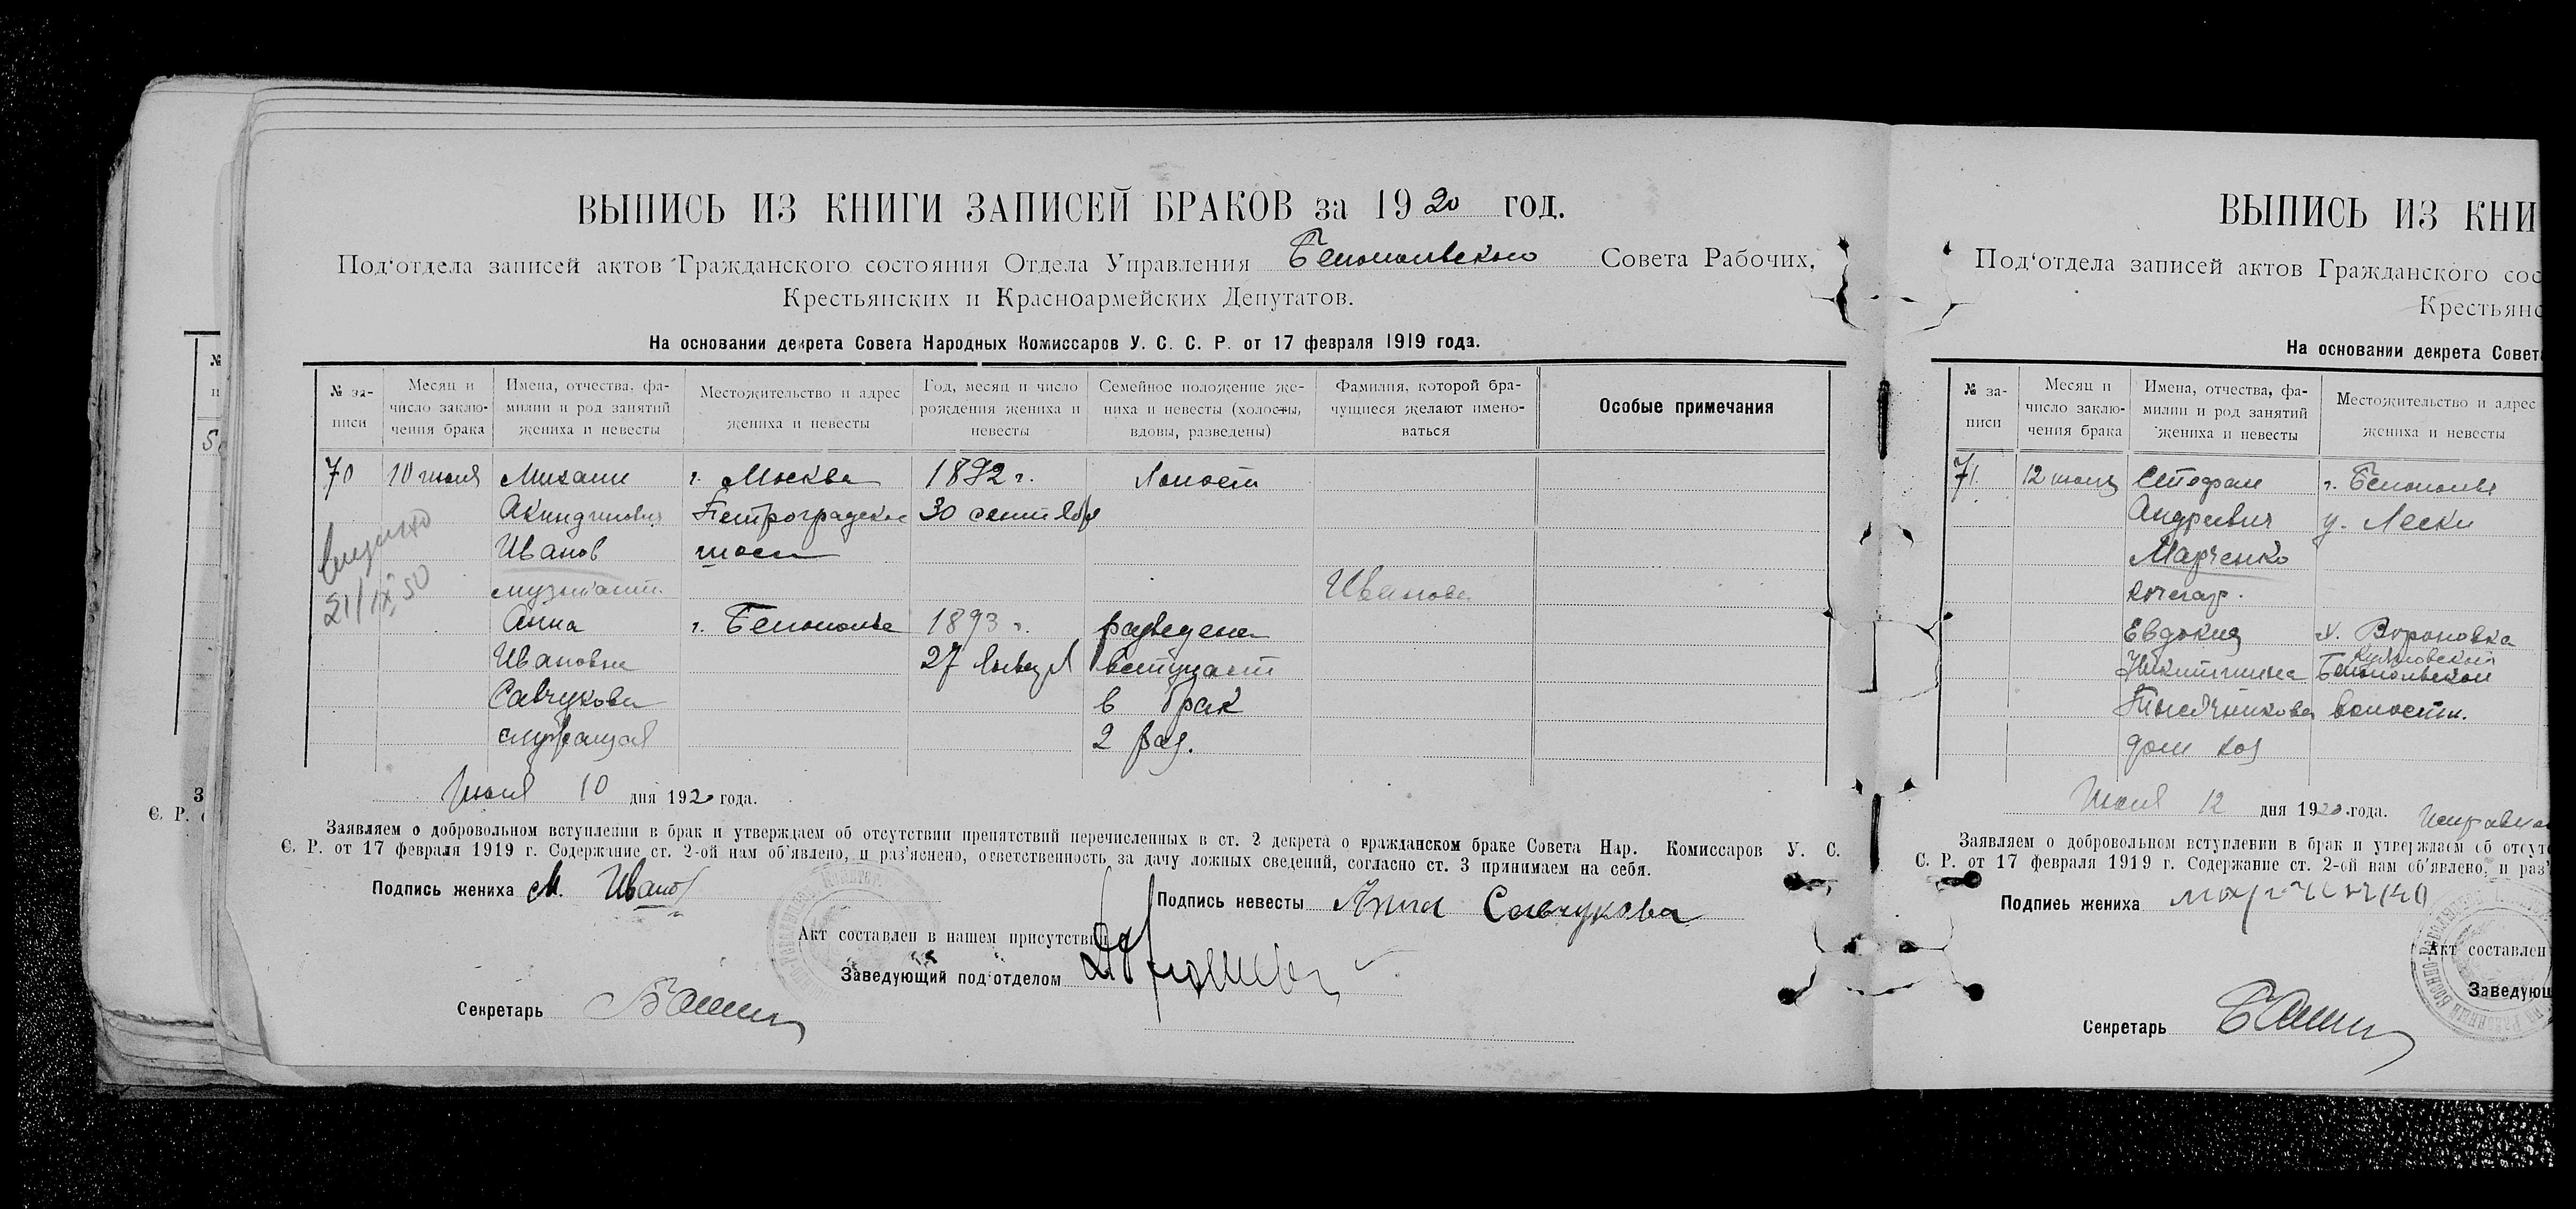 ВЫПИСЬ ИЗ КНИГИ ЗАПИСЕЙ БРАКОВ за 1920 год.
Под‘отдела записей актов Гражданского состояния Отдела Управления Белопольского Совета Рабочих,
Крестьянских и Красноармейских Депутатов.
На основании декрета Совета Народных Комиссаров У. С. С. Р. от 17 февраля 1919 года.
№ за-
писи
Месяц и
число заклю-
чения брака
Имена, отчества, фа-
милии и род занятий
жениха и невесты
Местожительство и адрес
жениха и невесты
Год, месяц и число
рождения жениха и
невесты
Семейное положение же-
ниха и невесты (холосты,
вдовы, разведены)
Фамилия, которой бра-
чущиеся желают имено-
ваться
Особые примечания
70 10 июля Михаил г. Москва 1892 г. Холост
Акиндинович Петроградское 30 сентября
Иванов шоссе
музыкант. Иванова
Анна г. Белополье 1893 г. разведена
Ивановна 27 января вступает
Савчукова в брак
служащая 2 раз.
21/IX 50
Июля 10 дня 1920 года.
Заявляем о добровольном вступлении в брак и утверждаем об отсутствии препятствий перечисленных в ст. 2 декрета о гражданском браке Совета Нар. Комиссаров У. С.
С. Р. от 17 февраля 1919 г. Содержание ст. 2-ой нам об‘явлено, и раз‘яснено, ответственность за дачу ложных сведений, согласно ст. 3 принимаем на себя.
Подпись жениха М. Иванов
Подпись невесты Анна Савчукова
Акт составлен в нашем присутствии
Заведующий под‘отделом
Секретарь
ВЫПИСЬ ИЗ КНИ
Под‘отдела записей актов Гражданского сос
Крестьянс
На основании декрета Совета
№ за-
писи
Месяц и
число заклю-
чения брака
Имена, отчества, фа-
милии и род занятий
жениха и невесты
Местожительство и адрес
жениха и невесты
71. 12 июля Стефан г. Белополье
Андреевич у. Лески
Марченко
кочегар.
Евдокия х. Вороновка
Никитишна Белопольской
волости.
дом хоз
Июля 12 дня 1920 года.
Заявляем о добровольном вступлении в брак и утверждаем об отсутс
С. Р. от 17 февраля 1919 г. Содержание ст. 2-ой нам об‘явлено, и раз‘
Подпись жениха Марченко
Акт составлен
Заведующ
Секретарь